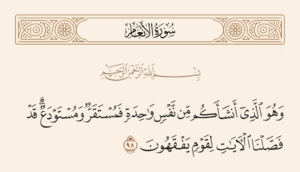 سُورَةُ الأَنْعَامِ
بِسْمِ اللَّهِ الرَّحْمَٰنِ الرَّحِيمِ
وَهُوَ ٱلَّذِىٓ أَنشَأَكُم مِّن نَّفْسٍ وَٰحِدَةٍ فَمُسْتَقَرٌّ وَمُسْتَوْدَعٌ ۗ قَدْ
فَصَّلْنَا ٱلْـَٔايَٰتِ لِقَوْمٍ يَفْقَهُونَ ٩٨